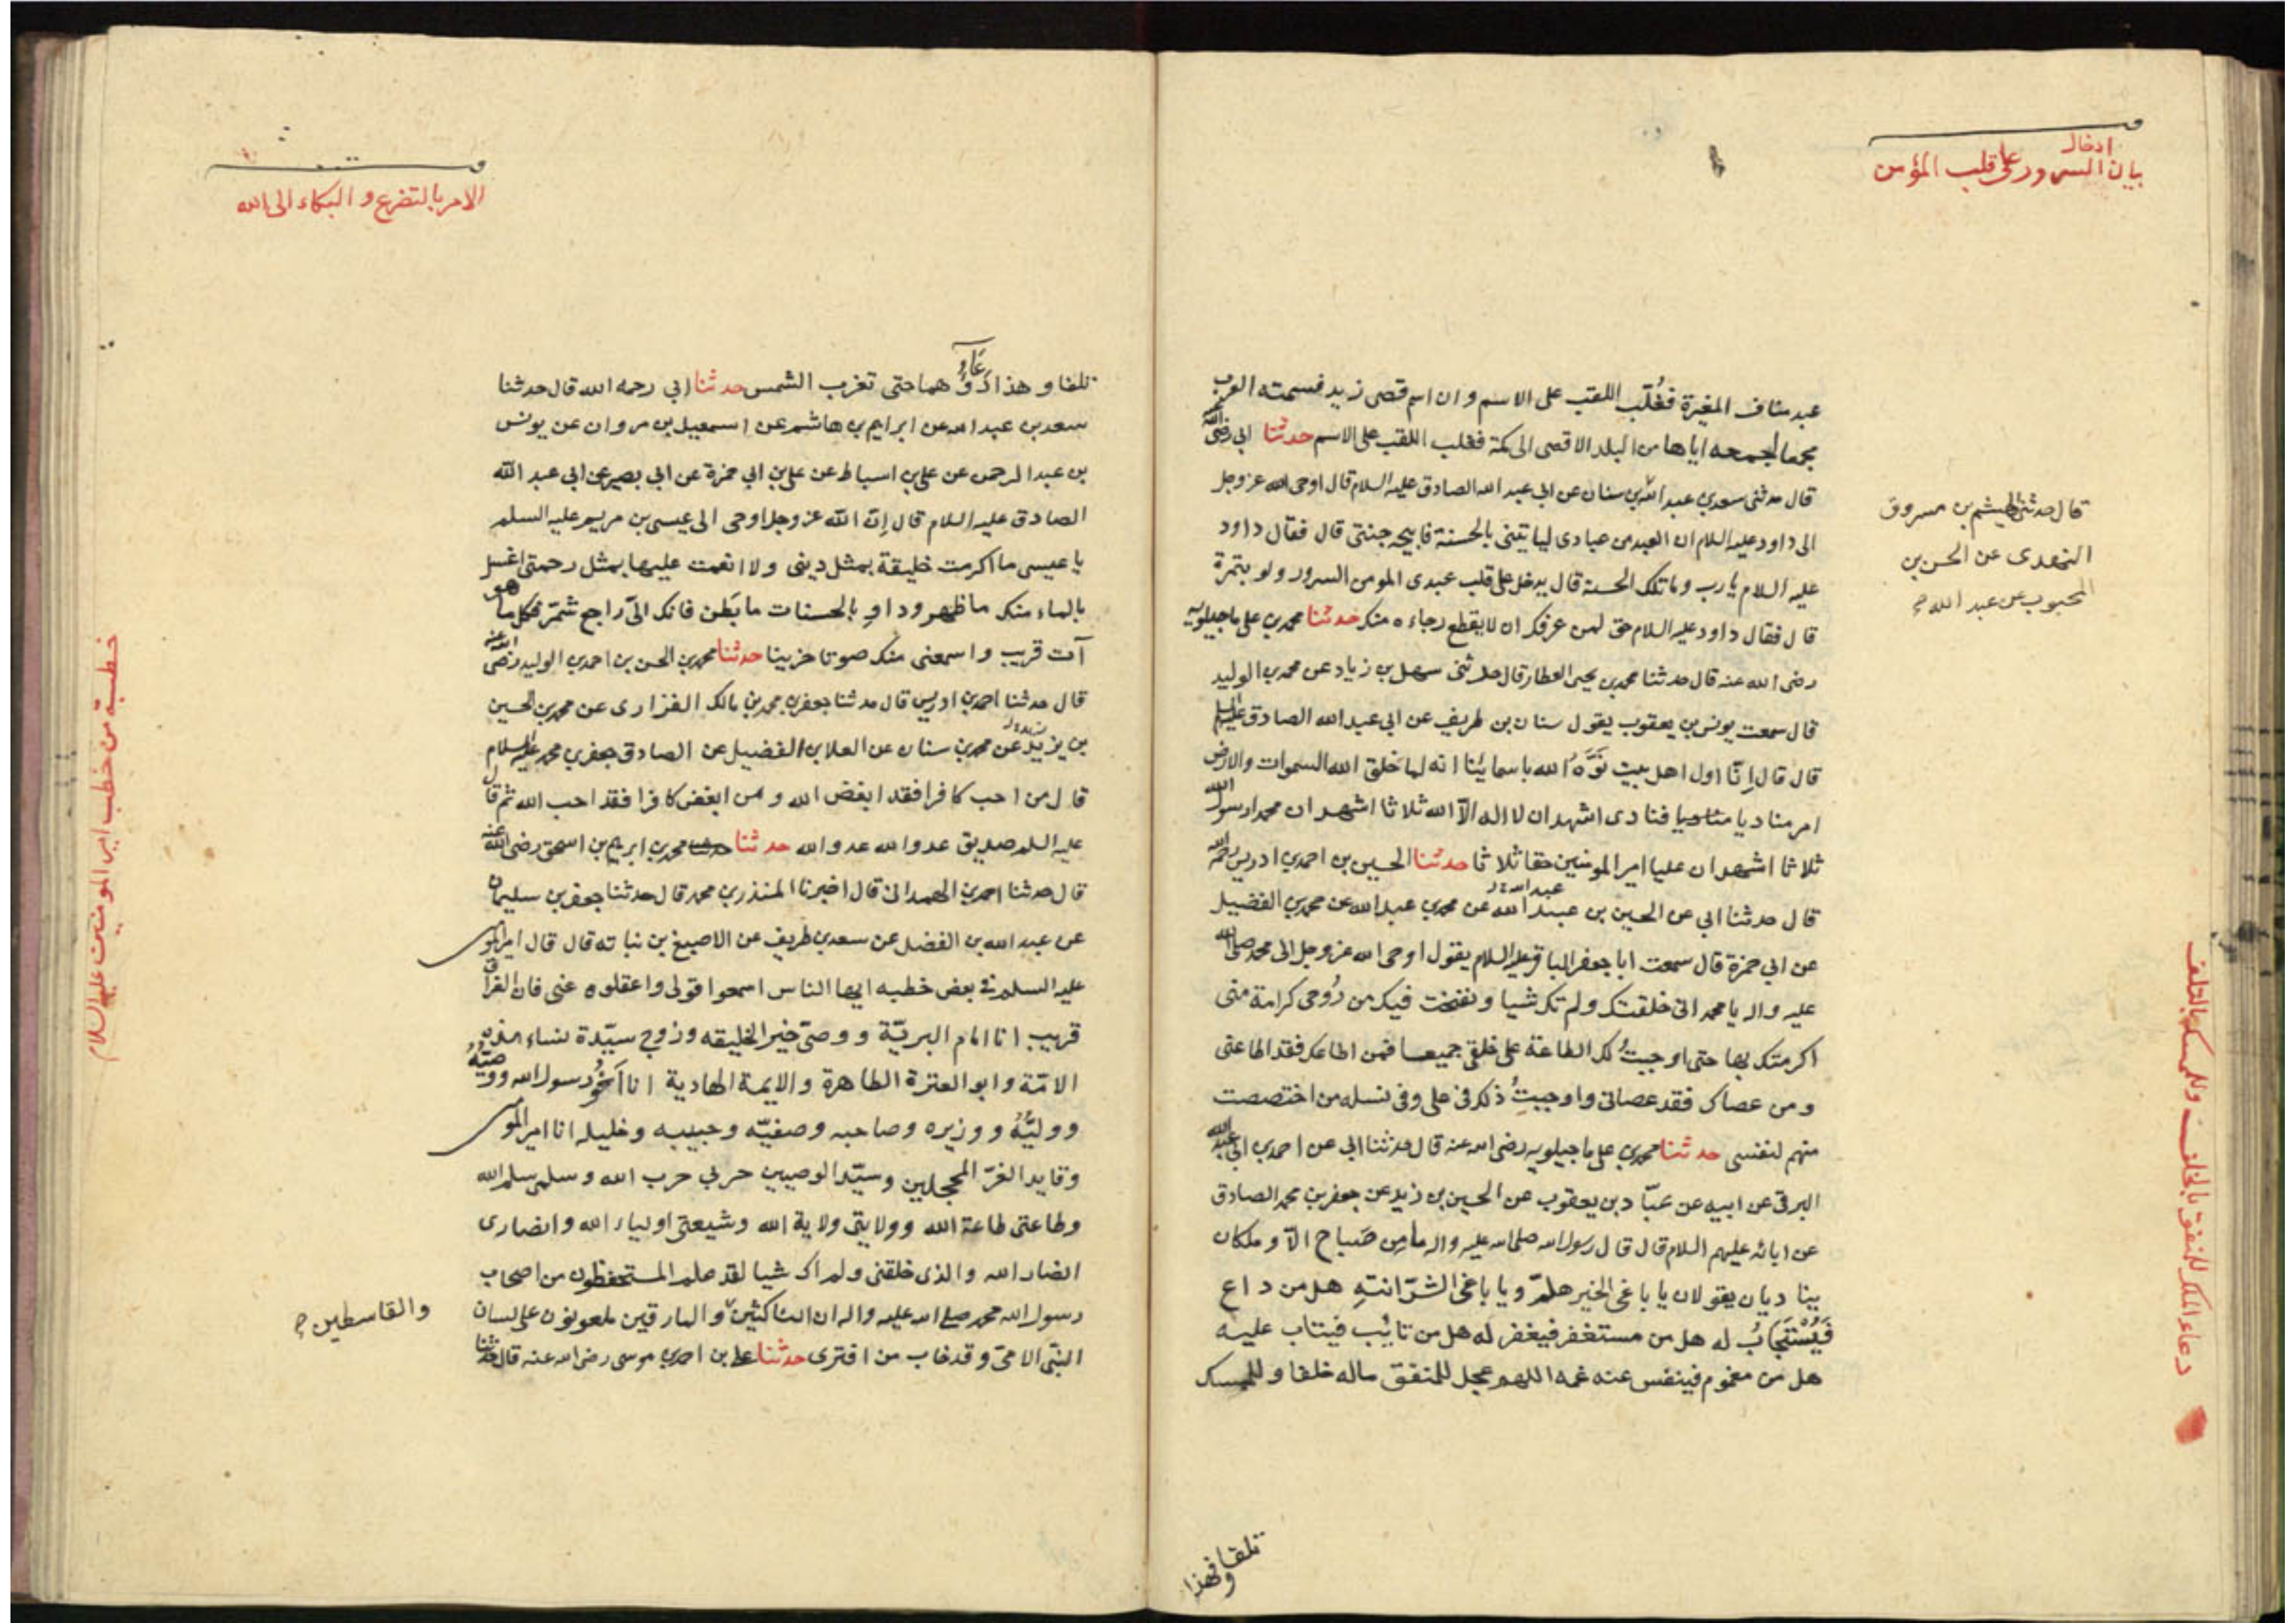 ادخال
بيان السرور على قلب المؤمن
عبد مناف المغيرة فغُلّب اللقب على الاسم و ان اسم قصى زيد فسمته العرب
مجمعا لجمعه اياها من البلد الاقصى الى مكة فغلب اللقب على الاسم حدثنا ابي رضى الله
قال حدثنى سعد بن عبد الله بن سنان عن ابى عبد الله الصادق عليه السلام قال اوحى الله عز وجل
الى داود عليه السلام ان العبد من عبادى لياتينى بالحسنة فابيحه جنتى قال فقال داود
عليه السلام يا رب وما تلك الحسنة قال يدخل على قلب عبدى المومن السرور ولو بتمرة
قال فقال داود عليه السلام حق لمن عرفك ان لا يقطع رجاءه منك حدثنا محمد بن على ماجيلويه
رضى الله عنه قال حدثنا محمد بن يحيى العطار قال حدثنى سهل بن زياد عن محمد بن الوليد
قال سمعت يونس بن يعقوب يقول سنان بن طريف عن ابى عبد الله الصادق عليه السلم
قال قال اِنّا اول اهل بيت نَوَّهَ الله باسمائنا انه لما خلق الله السموات والارض
امر مناديا فنادى اشهد ان لا اله الّا الله ثلاثا اشهد ان محمدا رسول الله
ثلاثا اشهد ان عليا امير المومنين حقا ثلاثا حدثنا الحسين بن احمد بن ادريس رحمه الله
قال حدثنا ابى عن الحسين بن عبيد الله عن محمد بن عبد الله عن محمد بن الفضيل
عن ابي حمزة قال سمعت ابا جعفر الباقر عليه السلام يقول اوحى الله عز وجل الى محمد صلى الله
عليه واله يا محمد انى خلقتك ولم تك شيا ونفخت فيك من رُوحى كرامة منى
اكرمتك بها حتى اوجبتُ لك الطاعة على خلقى جميعا فمن اطاعك فقد اطاعنى
ومن عصاك فقد عصانى واوجبتُ ذلك فى على وفى نسله من اختصصت
منهم لنفسى حدثنا محمد بن على ماجيلويه رضى الله عنه قال حدثنا ابى عن احمد بن ابى عبد الله
البرقى عن ابيه عن عبّاد بن يعقوب عن الحسين بن زيد عن جعفر بن محمد الصادق
عن ابائه عليهم السلام قال قال رسول الله صلى الله عليه واله ما من صَباح الّا و ملكان
يناديان يقولان يا باغى الخير هلمّ ويا باغى الشرّ انتهِ هل من داع
فَيُسْتَجَابُ له هل من مستغفر فيغفر له هل من تائب فيتاب عليه
هل من مغموم فينفس عنه غمه اللهم عجل للمنفق ماله خلفا و للممسك
قال حدثنى الهيثم بن مسروق
النهدى عن الحسن بن
المحبوب عن عبد الله
دعاء الملك للمنفق بالخلف وللممسك بالتلف
تلفا
فهذا
الامر بالتضرع و البكاء الى الله
تلفا و هذا دعاؤهما حتى تغرب الشمس حدثنا ابي رحمه الله قال حدثنا
سعد بن عبد الله عن ابراهيم بن هاشم عن اسمعيل بن مروان عن يونس
بن عبد الرحمن عن على بن اسباط عن على بن ابي حمزة عن ابي بصير عن ابى عبد الله
الصادق عليه السلام قال اِنّ الله عز وجل اوحى الى عيسى بن مريم عليه السلم
يا عيسى ما اكرمت خليقة بمثل دينى ولا انعمت عليها بمثل رحمتى اغسل
بالماء منك ما ظهر وداوِ بالحسنات ما بَطن فانك الىّ راجع شمّر فكل ما هو
آت قريب و اسمعنى منك صوتا حزينا حدثنا محمد بن الحسن بن احمد بن الوليد رضى الله عنه
قال حدثنا احمد بن ادريس قال حدثنا جعفر بن محمد بن مالك الفزارى عن محمد بن الحسين
بن يزيد عن محمد بن سنان عن العلا بن الفضيل عن الصادق جعفر بن محمد عليه السلام
قال من احب كافرا فقد ابغض الله و من ابغض كافرا فقد احب الله ثم قال
عليه السلم صديق عدو الله عدو الله حدثنا محمد بن ابرهيم بن اسحق رضى الله عنه
قال حدثنا احمد بن الهمدانى قال اخبرنا المنذر بن محمد قال حدثنا جعفر بن سليمان
عن عبد الله بن الفضل عن سعد بن طريف عن الاصبغ بن نباته قال قال امير المومنين
عليه السلم فى بعض خطبه ايها الناس اسمعوا قولى واعقلوه عنى فان الفراق
قريب انا امام البريّة ووصىّ خير الخليقه وزوج سيّدة نساء هذه
الامّة وابو العترة الطاهرة والايمة الهادية انا اَخُو رسول الله ووصيّهُ
ووليّهُ ووزيره وصاحبه وصفيّه وحبيبه وخليله انا امير المومنين
وقايد الغرّ المحجلين وسيّد الوصيين حربي حرب الله وسلمى سلم الله
وطاعتى طاعة الله وولايتى ولاية الله وشيعتى اولياء الله وانصارى
انصار الله والذى خلقنى ولم اك شيا لقد علم المستحفظون من اصحاب
رسول الله محمد صلى الله عليه واله ان الناكثين و المارقين ملعونون على لسان
النبّى الامّى وقد خاب من افترى حدثنا على بن احمد بن موسى رضى الله عنه قال حدثنا
والقاسطين
خطبة من خطب امير المومنين عليه السلام